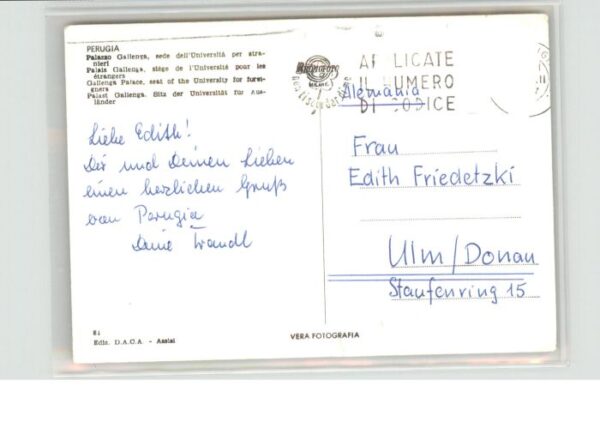 PERUGIA
Palazzo Gallenga, sede dell'Università per stra-
nieri
Palais Gallenga, siège de l'Université pour les
étrangers
Gallenga Palace, seat of the University for forei-
gners
Palast Gallenga. Sitz der Universität für Aus-
länder
Liebe Edith!
Dir und Deinen Lieben
einen herzlichen Gruß
von Perugia
Deine Traudl
81
Ediz. D.A.C.A. - Assisi
VERA FOTOGRAFIA
APPLICATE
IL NUMERO
DI CODICE
Alemania
Frau
Edith Friedetzki
Ulm/Donau
Staufenring 15